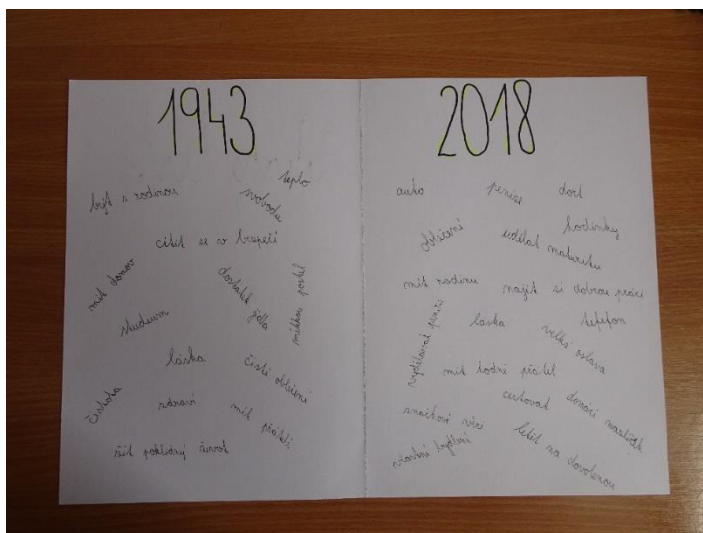 1943
teplo
být s rodinou
svobodu
cítit se v bezpečí
mít domov
dostatek jídla
měkkou postel
studium
láska
čisté oblečení
čistota
zdraví
mít přátele
žít poklidný život
2018
auto
peníze
dort
hodinky
oblečení
udělat maturitu
mít rodinu
najít si dobrou práci
vydělávat peníze
láska
telefon
velká oslava
mít hodně přátel
cestovat
domácí mazlíček
značkové věci
letět na dovolenou
vlastní bydlení